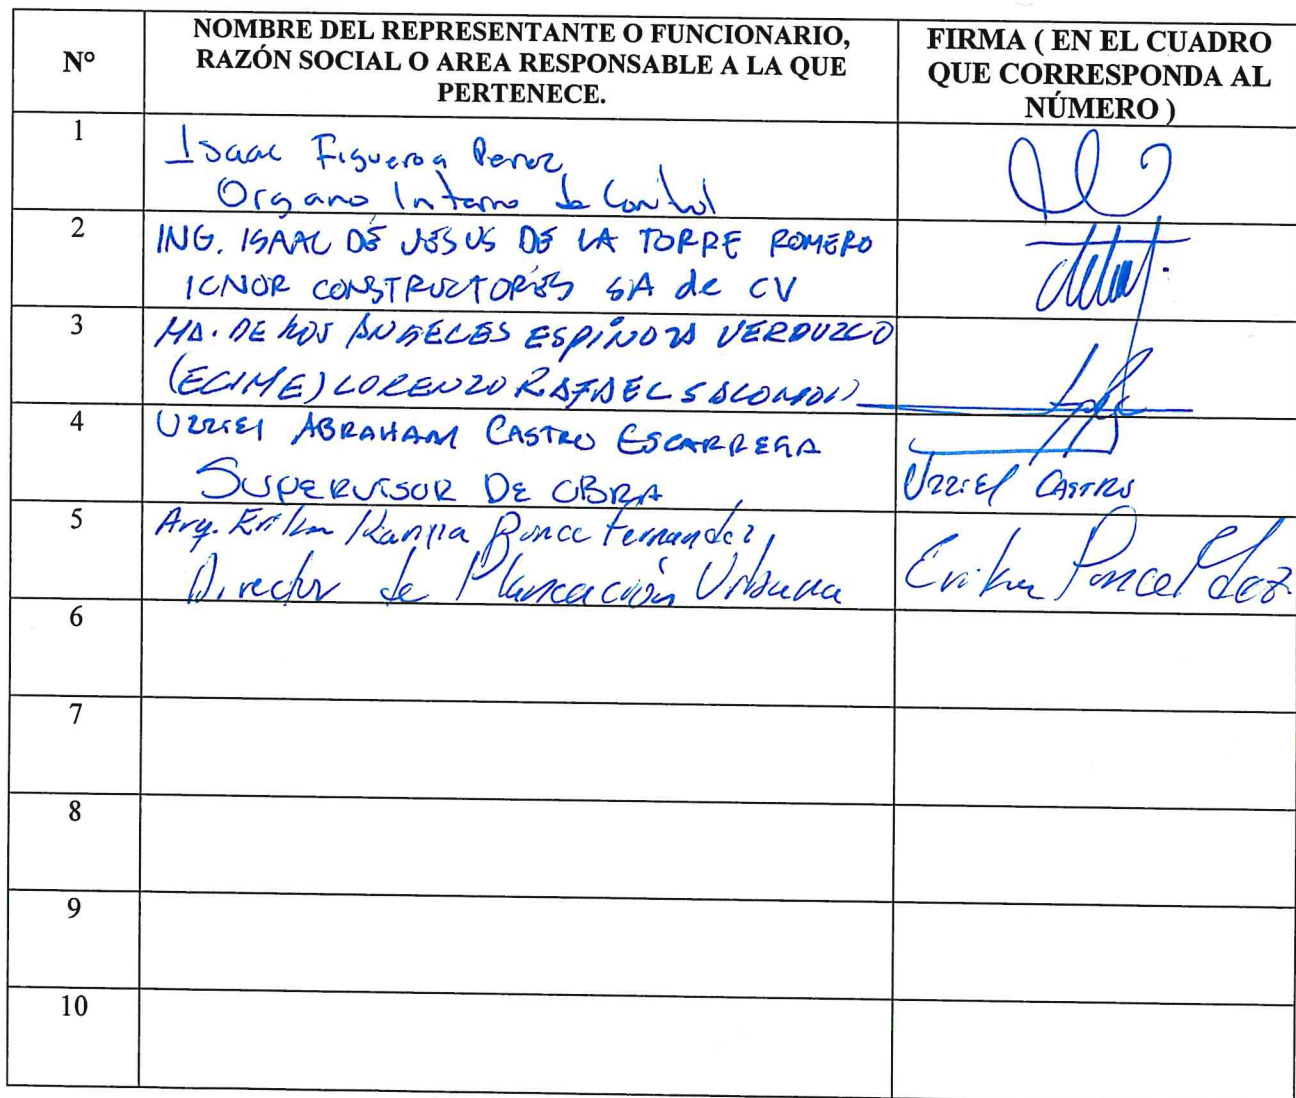 Nº
NOMBRE DEL REPRESENTANTE O FUNCIONARIO,
RAZÓN SOCIAL O AREA RESPONSABLE A LA QUE
PERTENECE.
FIRMA ( EN EL CUADRO
QUE CORRESPONDA AL
NÚMERO )
1
Isaac Figueroa Perez
Organo Interno de Control
2
ING. ISAAC DE JESUS DE LA TORRE ROMERO
ICNOR CONSTRUCTORES SA de CV
3
MA. DE LOS ANGELES ESPINOZA VERDUZCO
(ECIME) LORENZO RAFAEL SALOMON
4
UZZIEL ABRAHAM CASTRO ESCARREGA
SUPERVISOR DE OBRA
UZZIEL CASTRO
5
Arq. Erika Ponce Fernandez,
Director de Planeación Urbana
Erika Ponce Fdez
6
7
8
9
10